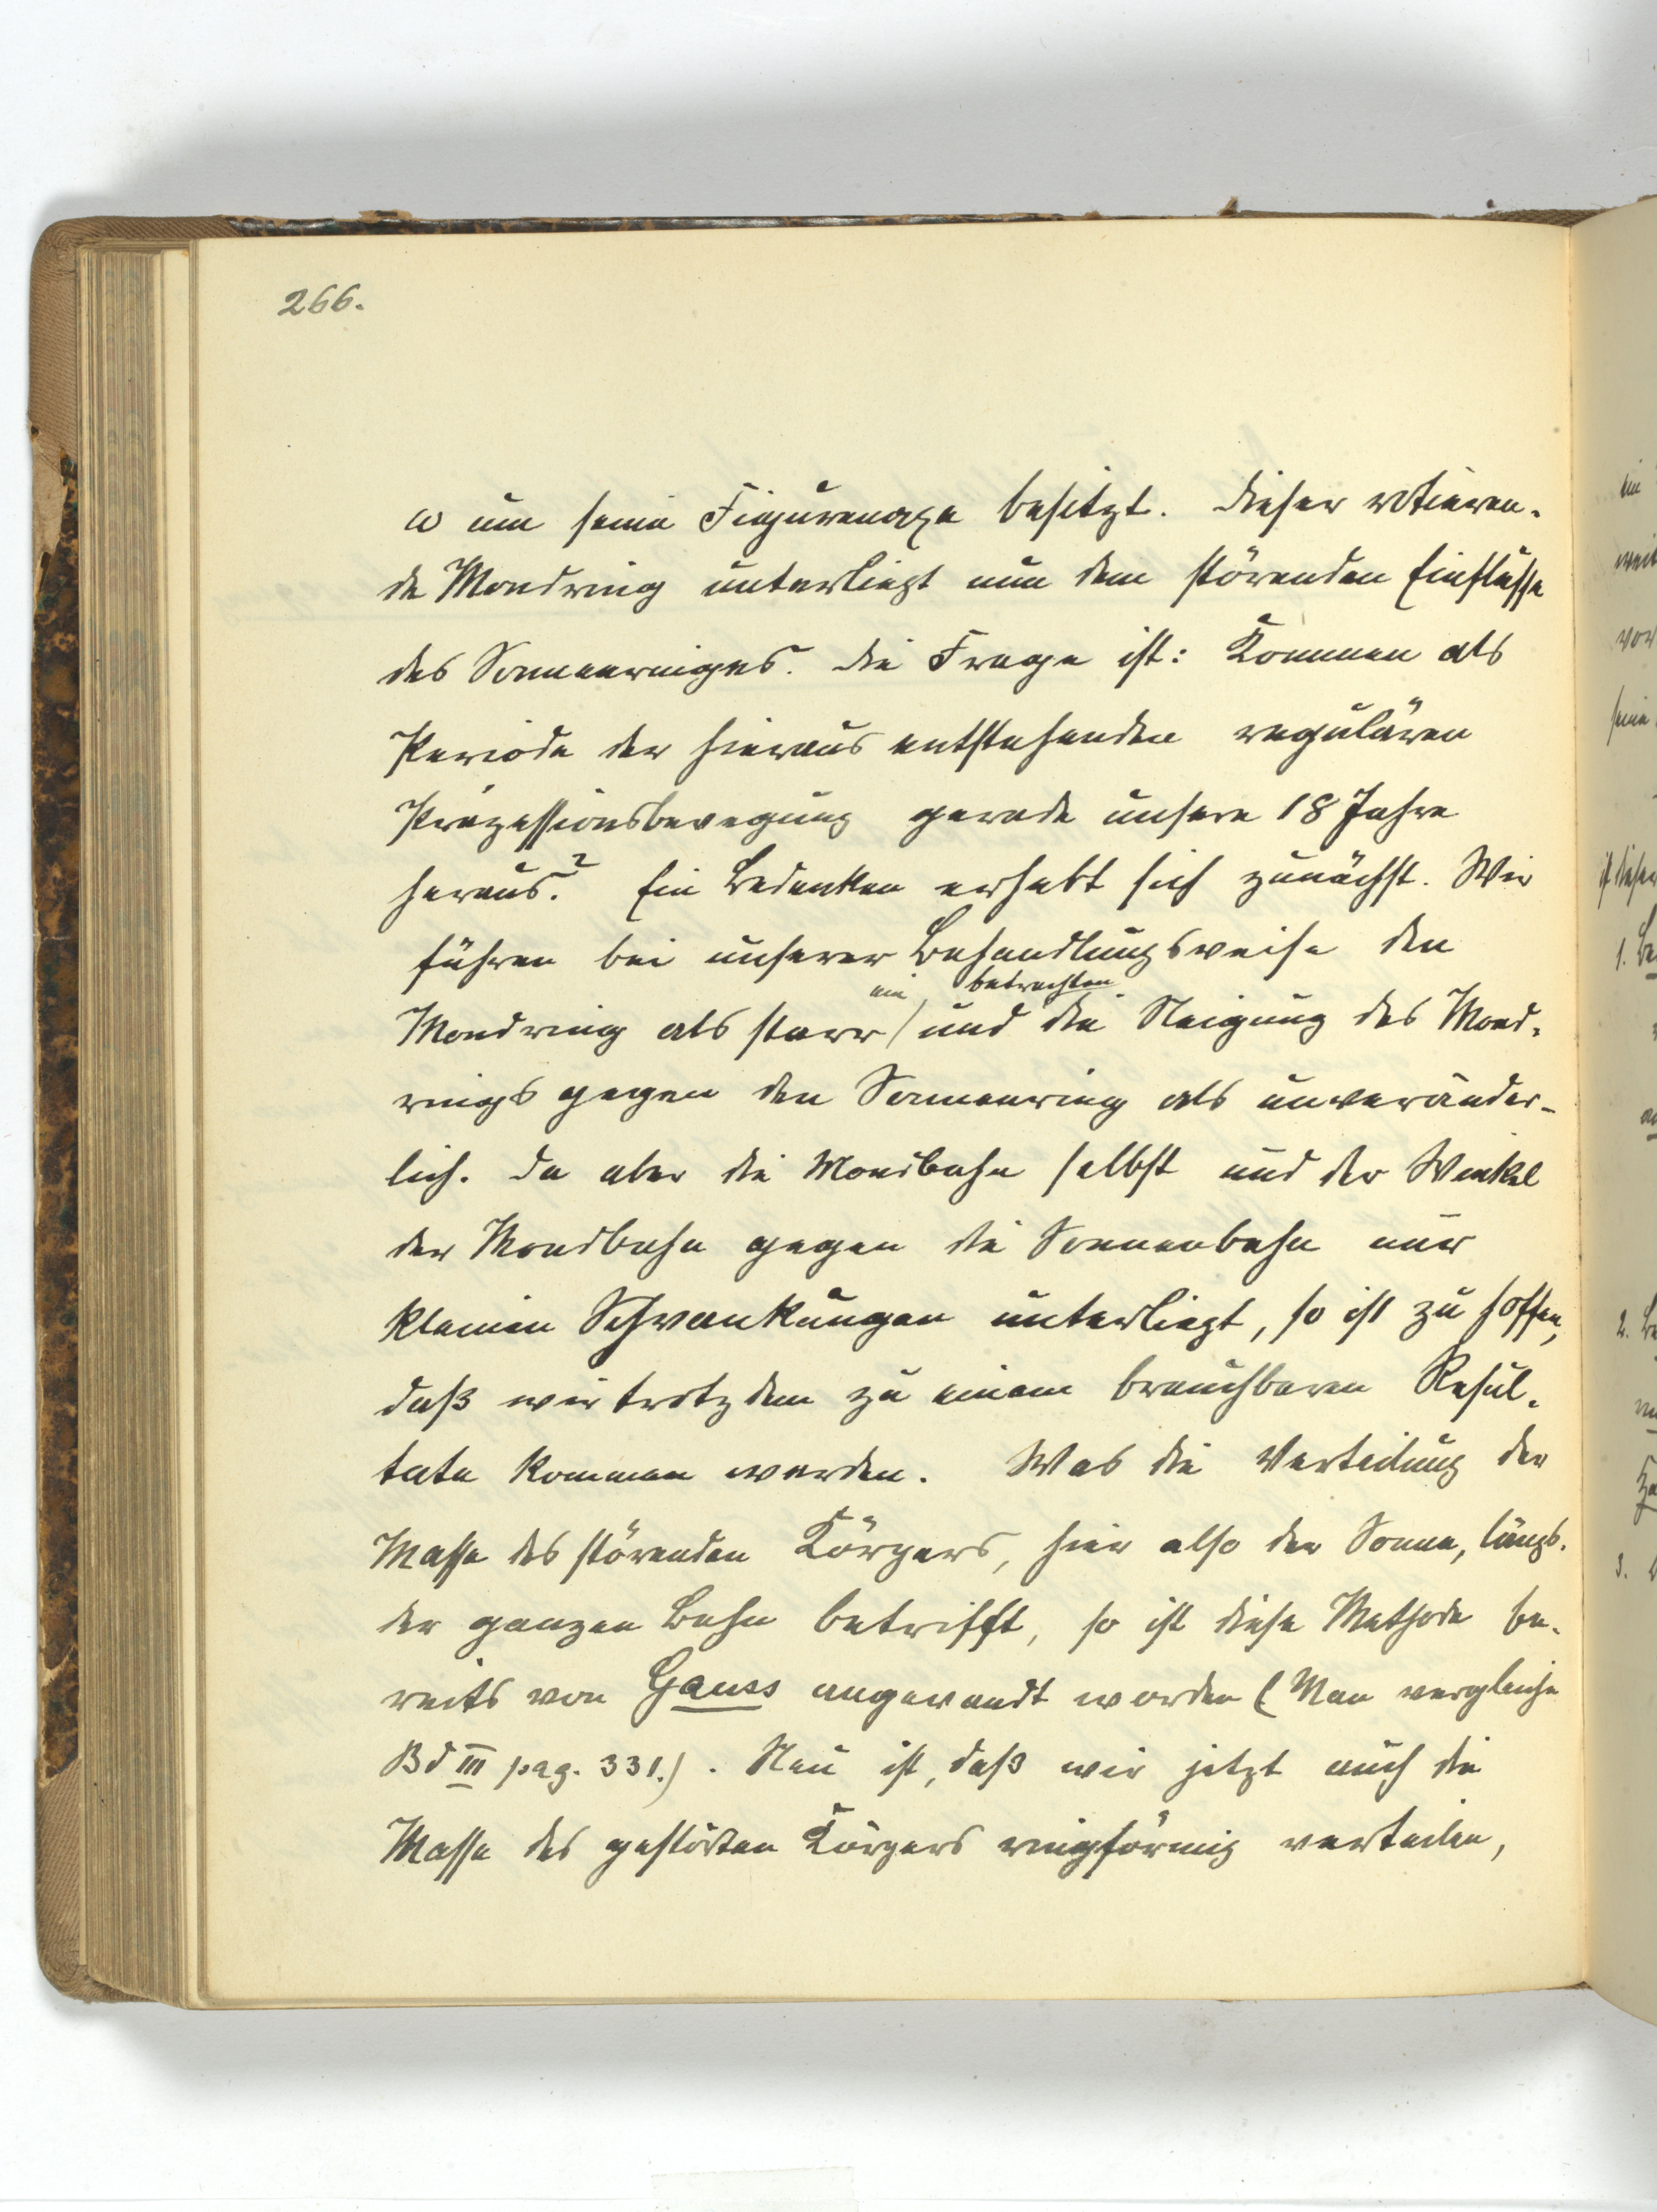 266.
ω um seine Figurenaxe besitzt. Dieser rotieren-
de Mondring unterliegt nun dem störenden Einflusse
des Sonnenringes. Die Frage ist: Kommen als
Periode der hieraus entstehenden regulären
Präzessionsbewegung gerade unsere 18 Jahre
heraus? Ein Bedenken erhebt sich zunächst. Wir
führen bei unserer Behandlungsweise den
Mondring als starr ein, betrachten und die Neigung des Mond-
rings gegen den Sonnenring als unveränder-
lich. Da aber die Mondbahn selbst und der Winkel
der Mondbahn gegen die Sonnenbahn nur
kleinen Schwankungen unterliegt, so ist zu hoffen,
daß wir trotzdem zu einem brauchbaren Resul-
tate kommen werden. Was die Verteilung der
Masse des störenden Körpers, hier also der Sonne, längs
der ganzen Bahn betrifft, so ist diese Methode be-
reits von Gauss angewandt worden (Man vergleiche
Bd III pag. 331.). Neu ist, daß wir jetzt auch die
Masse des gestörten Körpers ringförmig verteilen,